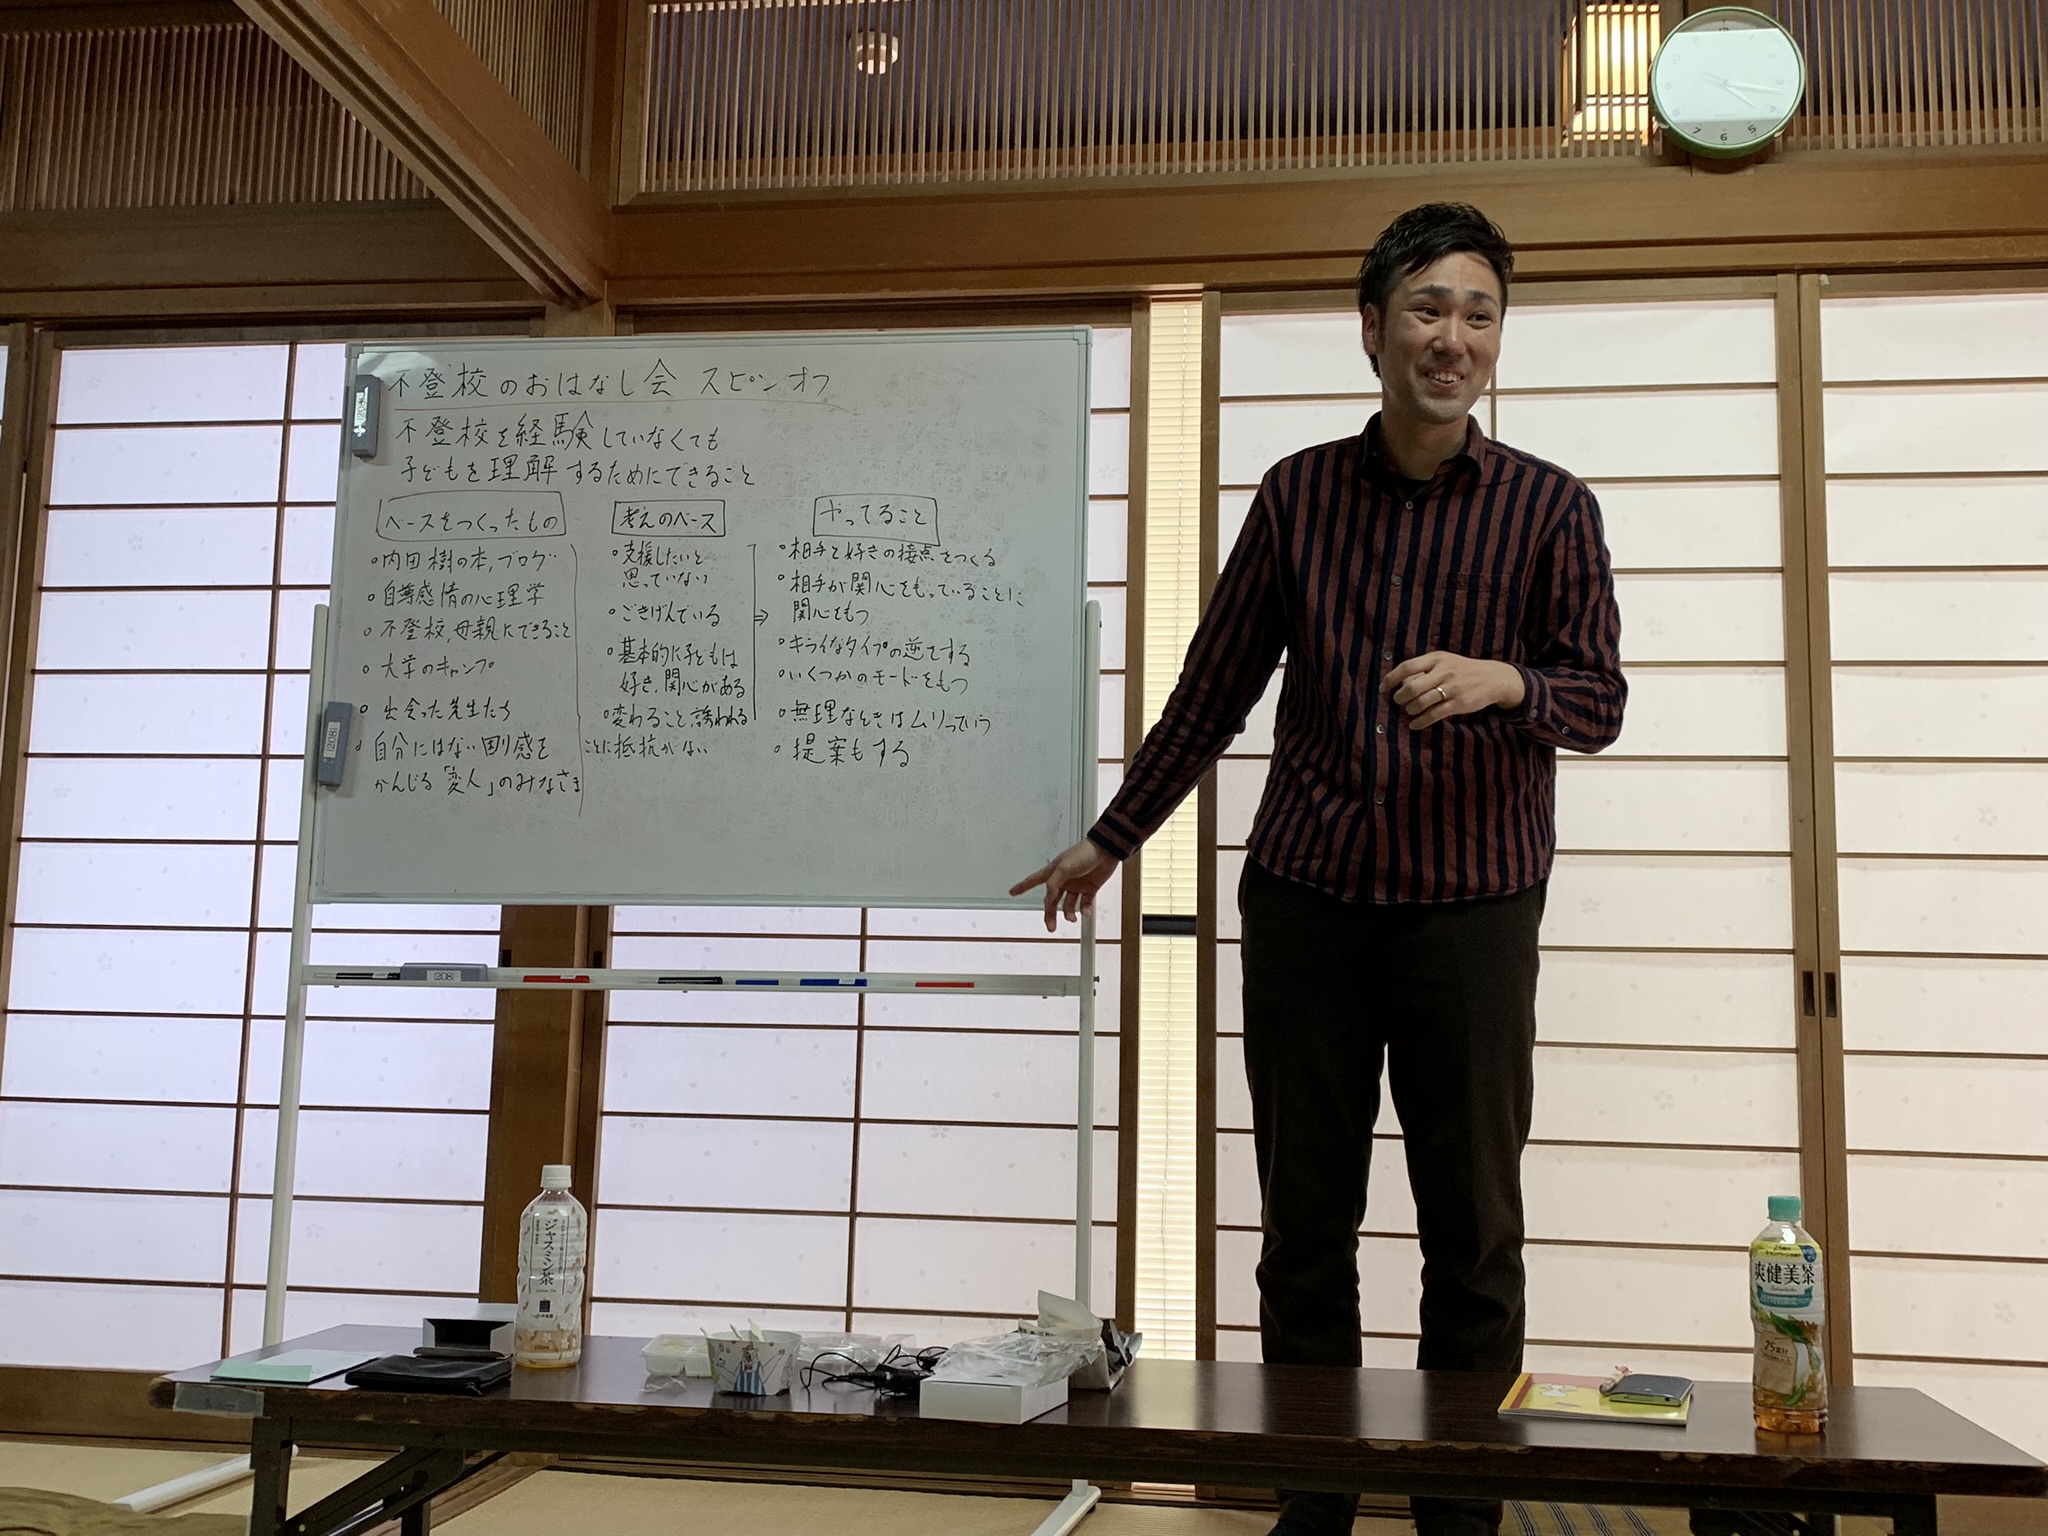 不登校のおはなし会 スピンオフ
不登校を経験していなくても
子どもを理解するためにできること
ベースをつくったもの
・内田樹の本,ブログ
・自尊感情の心理学
・不登校,母親にできること
・大学のキャンプ
・出会った先生たち
・自分にはない剛感を
かんじる「変人」のみなさま
考えのベース
・支援したいと
思っていない
・ごきげんでいる
・基本的に子どもは
好き,関心がある
・変わること,誘われる
ことに抵抗がない
⇒
やってること
・相手と好きの接点をつくる
・相手が関心をもっていることに
関心をもつ
・キライなタイプの逆をする
・いくつかのモードをもつ
・無理なときはムリっていう
・提案もする
208
208
7 6 5 4
ジャスミン茶
爽健美茶
25素材